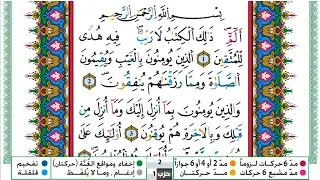 بِسْمِ اللَّهِ الرَّحْمَٰنِ الرَّحِيمِ
الٓمٓ ۝١ ذَٰلِكَ الْكِتَٰبُ لَا رَيْبَ ۛ فِيهِ ۛ هُدًى
لِّلْمُتَّقِينَ ۝٢ الَّذِينَ يُؤْمِنُونَ بِالْغَيْبِ وَيُقِيمُونَ
الصَّلَوٰةَ وَمِمَّا رَزَقْنَٰهُمْ يُنفِقُونَ ۝٣
وَالَّذِينَ يُؤْمِنُونَ بِمَآ أُنزِلَ إِلَيْكَ وَمَآ أُنزِلَ مِن
قَبْلِكَ وَبِالْءَاخِرَةِ هُمْ يُوقِنُونَ ۝٤ أُو۟لَٰٓئِكَ عَلَىٰ
مدّ 6 حركات لزوماً مدّ 2 أو 4 أو 6 جوازاً إخفاء ومواقع الغُنَّة (حركتان) تفخيم
مدّ مشبع 6 حركات مدّ حركتان إدغام ، وما لا يُلفَظ قلقلة
2
حزب 1